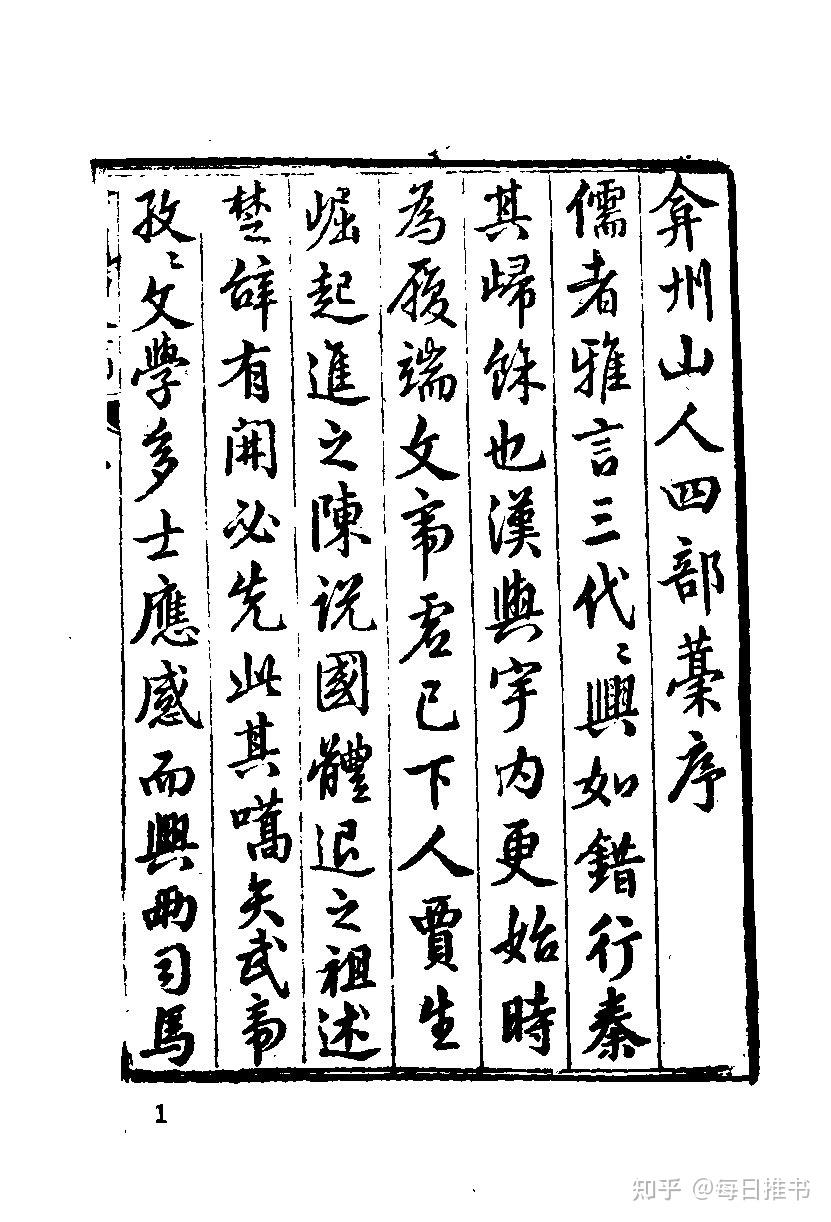 弇州山人四部藁序
儒者雅言三代〻興如錯行秦
其歸餘也漢興宇内更始時
為履端文帝君已下人賈生
崛起進之陳說國體退之祖述
楚辭有開必先此其嚆矢武帝
孜〻文學多士應感而興兩司馬
1
知乎 @每日推书